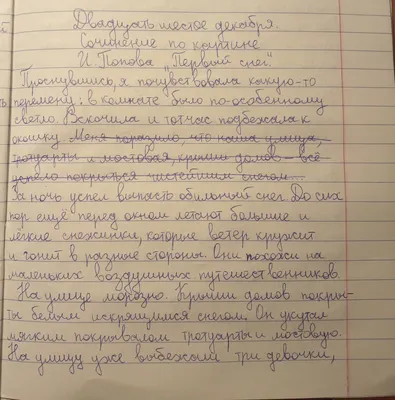 Двадцать шестое декабря.
Сочинение по картине
И. Попова „Первый снег."
Проснувшись, я почувствовала какую-то
перемену: в комнате было по-особенному
светло. Вскочила и тотчас подбежала к
окошку. Меня поразило, что наша улица,
тротуарты и мостовая, крыши домов – всё
успело покрыться чистейшим снегом...
За ночь успел выпасть обильный снег. До сих
пор ещё перед окном летают большие и
лёгкие снежинки, которые ветер кружит
и гонит в разные стороны. Они похожи на
маленьких воздушных путешественников.
На улице морозно. Крыши домов покры-
ты белым искрящимся снегом. Он укутал
мягким покрывалом тротуарты и мостовую.
На улицу уже выбежали три девочки,